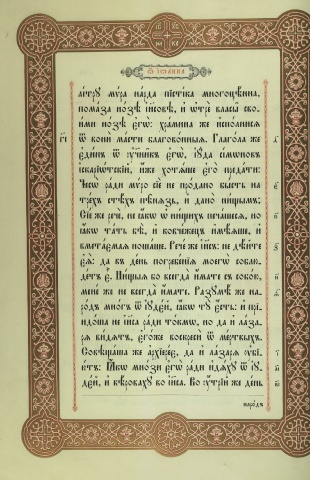 Ѿ іѡа́нна
лі́тру мѵ́ра на́рда пїсті́ка многоцѣ́нна,
пома́за но́зѣ і҆и҃сѡвѣ, и҆ ѡ҆трѐ власы̀ свои́
ми но́зѣ є҆гѡ̀: хра́мина же и҆спо́лнисѧ
ѿ вонѝ ма́сти благово́нныѧ. Глаго́ла же
є҆ди́нъ ѿ ᲂу҆чн҃къ є҆гѡ̀, і҆ꙋ́да сі́мѡновъ
і҆скарїѡ́тскїй, и҆́же хотѧ́ше є҆го̀ преда́ти:
Чесѡ̀ ра́ди мѵ́ро сїѐ не про́дано бы́сть на
трє́хъ стѣ́хъ пѣ̑нѧзь, и҆ дано̀ ни́щымъ;
Сїе́ же речѐ, не ꙗ҆́кѡ ѡ҆ ни́щихъ печа́шесѧ, но
ꙗ҆́кѡ та́ть бѣ̀, и҆ ковче́жецъ и҆мѣ́ѧше, и҆
вмета́ємаѧ ноша́ше. Рече́ же і҆и҃съ: не дѣ́йте
є҆ѧ̀: да въ де́нь погребе́нїѧ моегѡ̀ соблю
де́тъ є҆̀. Ни́щыѧ бо всегда̀ и҆́мате съ собо́ю,
мене́ же не всегда̀ и҆́мате. Разꙋмѣ́ же на
ро́дъ мно́гъ ѿ і҆ꙋдє́й, ꙗ҆́кѡ тꙋ̀ є҆́сть: и҆ прї
идо́ша не і҆и҃са ра́ди то́кмѡ, но да и҆ ла́за
рѧ ви́дѧтъ, є҆го́же воскресѝ ѿ ме́ртвыхъ.
Совѣща́ша же а҆рхїере́є, да и҆ ла́зарѧ ᲂу҆бїю́
тъ: Ꙗ҆́кѡ мно́зи є҆гѡ̀ ра́ди и҆дѧ́хꙋ ѿ і҆ꙋ
де́й, и҆ вѣ́ровахꙋ во і҆и҃са. Во ᲂу҆́трїй же де́нь
наро́дъ